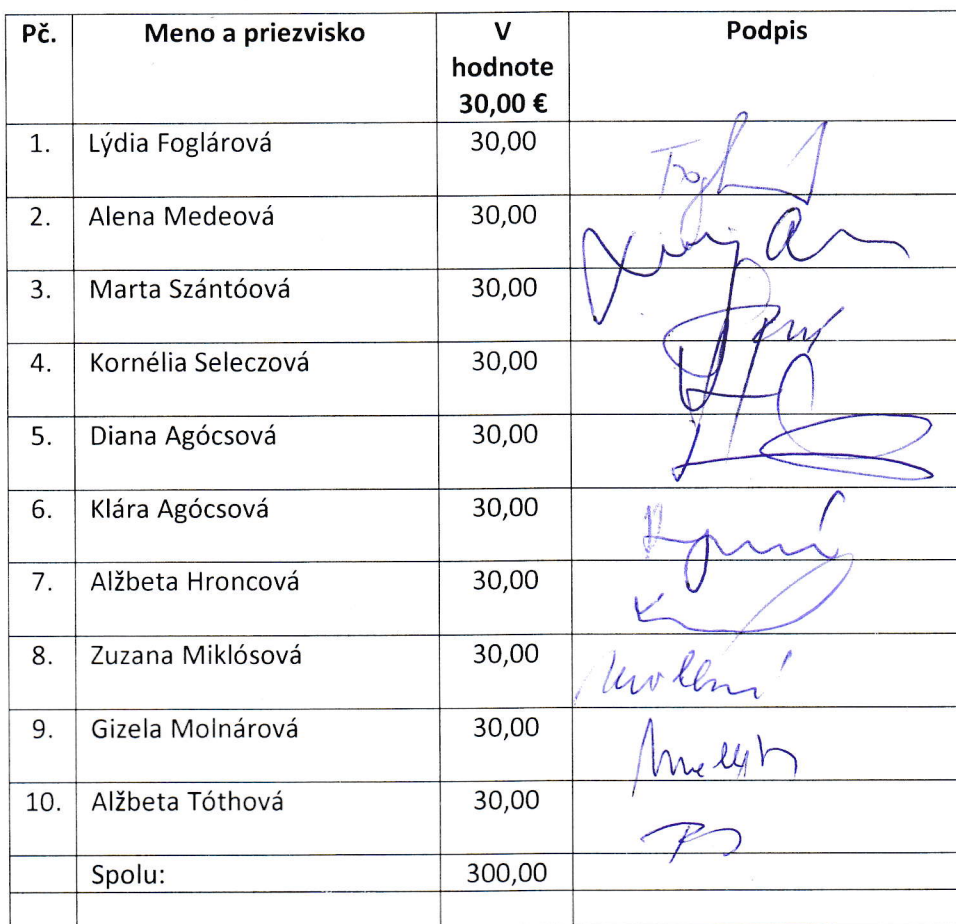 Pč. Meno a priezvisko V hodnote 30,00 € Podpis
1. Lýdia Foglárová 30,00
2. Alena Medeová 30,00
3. Marta Szántóová 30,00
4. Kornélia Seleczová 30,00
5. Diana Agócsová 30,00
6. Klára Agócsová 30,00
7. Alžbeta Hroncová 30,00
8. Zuzana Miklósová 30,00
9. Gizela Molnárová 30,00
10. Alžbeta Tóthová 30,00
Spolu: 300,00